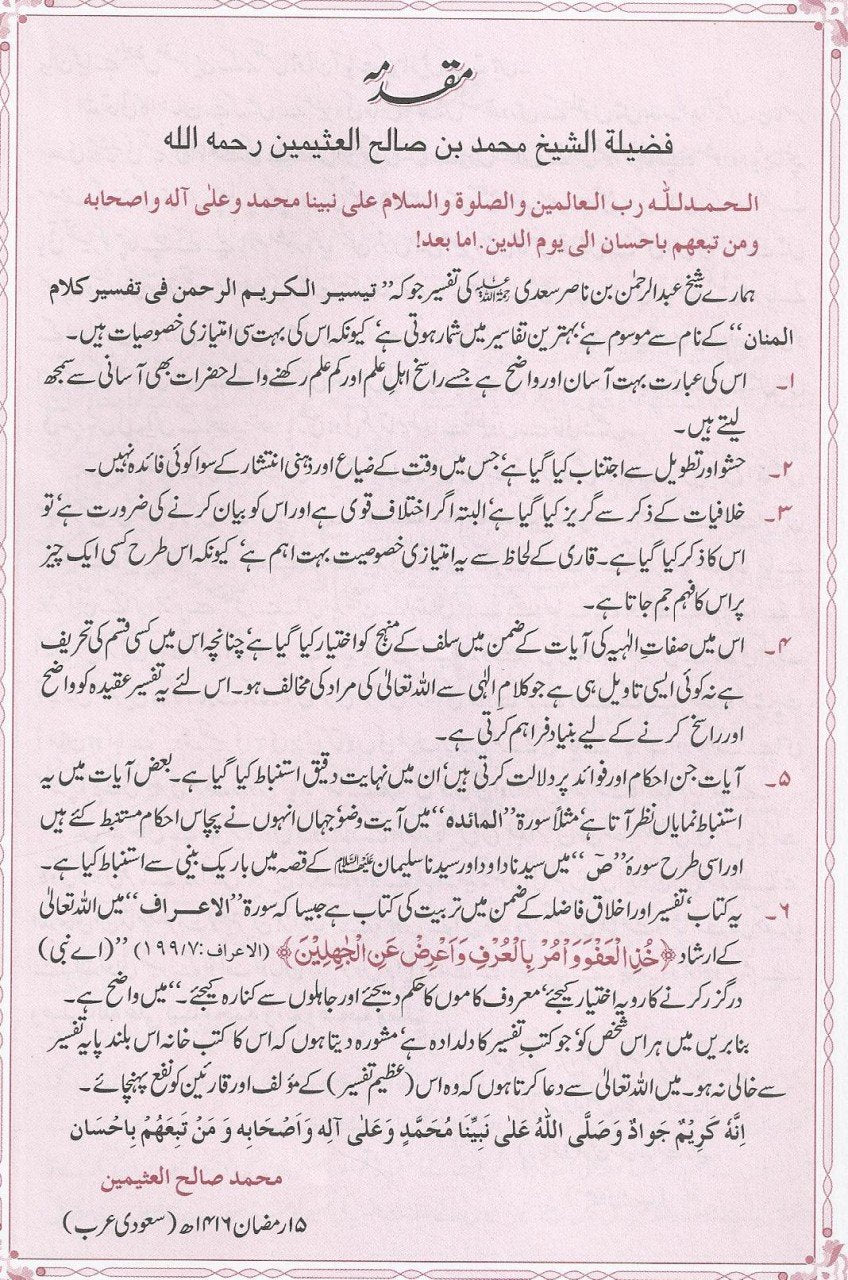 مقدمہ
فضيلة الشيخ محمد بن صالح العثيمين رحمه الله
الـحـمـدلـلّٰـه رب الـعالمين والصلوة والسلام علی نبینا محمد وعلٰی آله واصحابه
ومن تبعهم باحسان الی یوم الدین. اما بعد!
ہمارے شیخ عبدالرحمٰن بن ناصر سعدی رحمۃ اللہ علیہ کی تفسیر جو کہ ’’تیسیر الکریم الرحمن فی تفسیر کلام
المنان‘‘ کے نام سے موسوم ہے‘ بہترین تفاسیر میں شمار ہوتی ہے‘ کیونکہ اس کی بہت سی امتیازی خصوصیات ہیں۔
۱۔ اس کی عبارت بہت آسان اور واضح ہے جسے راسخ اہلِ علم اور کم علم رکھنے والے حضرات بھی آسانی سے سمجھ
لیتے ہیں۔
۲۔ حشو اور تطویل سے اجتناب کیا گیا ہے‘ جس میں وقت کے ضیاع اور ذہنی انتشار کے سوا کوئی فائدہ نہیں۔
۳۔ خلافیات کے ذکر سے گریز کیا گیا ہے‘ البتہ اگر اختلاف قوی ہے اور اس کو بیان کرنے کی ضرورت ہے‘ تو
اس کا ذکر کیا گیا ہے۔ قاری کے لحاظ سے یہ امتیازی خصوصیت بہت اہم ہے‘ کیونکہ اس طرح کسی ایک چیز
پر اس کا فہم جم جاتا ہے۔
۴۔ اس میں صفاتِ الٰہیہ کی آیات کے ضمن میں سلف کے منہج کو اختیار کیا گیا ہے‘ چنانچہ اس میں کسی قسم کی تحریف
ہے نہ کوئی ایسی تاویل ہی ہے جو کلامِ الٰہی سے اللہ تعالیٰ کی مراد کی مخالف ہو۔ اس لئے یہ تفسیر عقیدہ کو واضح
اور راسخ کرنے کے لیے بنیاد فراہم کرتی ہے۔
۵۔ آیات جن احکام اور فوائد پر دلالت کرتی ہیں‘ ان میں نہایت دقیق استنباط کیا گیا ہے۔ بعض آیات میں یہ
استنباط نمایاں نظر آتا ہے‘ مثلاً سورۃ ’’المائدہ‘‘ میں آیت وضو‘ جہاں انہوں نے پچاس احکام مستنبط کئے ہیں
اور اسی طرح سورۂ ’’صٓ‘‘ میں سیدنا داود اور سیدنا سلیمان علیہما السلام کے قصہ میں باریک بینی سے استنباط کیا ہے۔
۶۔ یہ کتاب‘ تفسیر اور اخلاق فاضلہ کے ضمن میں تربیت کی کتاب ہے جیسا کہ سورۃ ’’الاعـراف‘‘ میں اللہ تعالیٰ
کے ارشاد ﴿خُذِ الْعَفْوَ وَاْمُرْ بِالْعُرْفِ وَاَعْرِضْ عَنِ الْجٰهِلِيْنَ﴾ (الاعراف:۷/۱۹۹) ’’(اے نبی)
درگزر کرنے کا رویہ اختیار کیجئے‘ معروف کاموں کا حکم دیجئے اور جاہلوں سے کنارہ کیجئے۔‘‘ میں واضح ہے۔
بنابریں میں ہر اس شخص کو‘ جو کتبِ تفسیر کا دلدادہ ہے‘ مشورہ دیتا ہوں کہ اس کا کتب خانہ اس بلند پایہ تفسیر
سے خالی نہ ہو۔ میں اللہ تعالیٰ سے دعا کرتا ہوں کہ وہ اس (عظیم تفسیر) کے مؤلف اور قارئین کو نفع پہنچائے۔
اِنَّهٗ كَرِيْمٌ جَوادٌ وَصَلَّى اللّٰهُ عَلٰى نَبِيِّنَا مُحَمَّدٍ وَعَلٰى آلِهٖ وَاَصْحَابِهٖ وَ مَنْ تَبِعَهُمْ بِاِحْسَان
محمد صالح العثیمین
۱۵ رمضان ۱۴۱۶ھ (سعودی عرب)